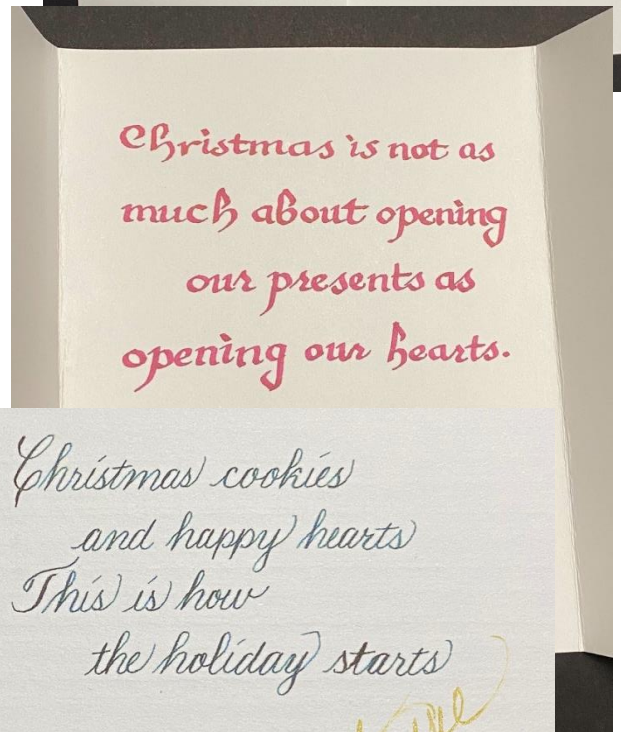 Christmas is not as
much about opening
our presents as
opening our hearts.
Christmas cookies
and happy hearts
This is how
the holiday starts